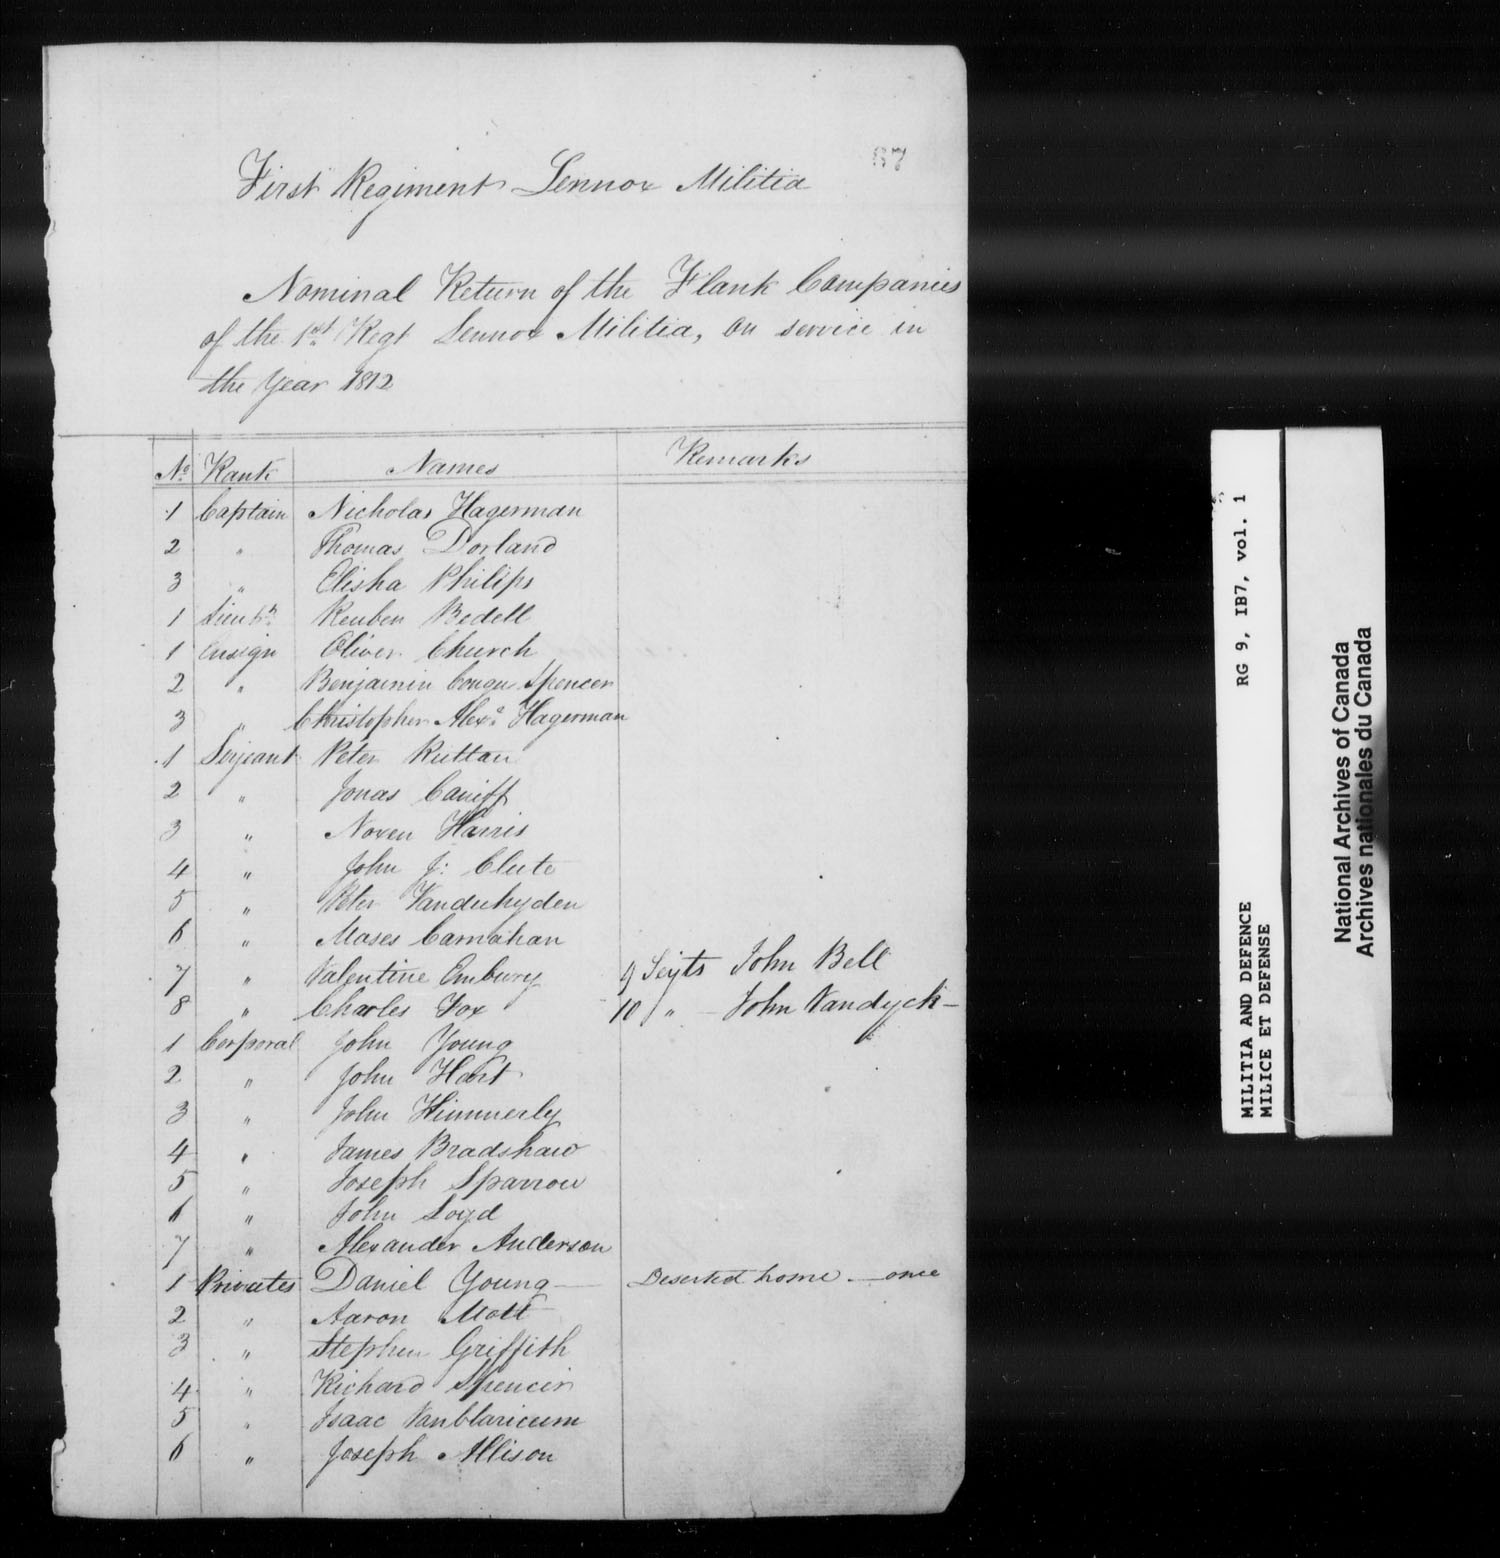 67
First Regiment Lennox Militia
Nominal Return of the Flank Companies
of the 1st Regt Lennox Militia, on service in
the Year 1812
No. Rank Names Remarks
1 Captain Nicholas Hagerman
2 " Thomas Dorland
3 " Elisha Philips
1 Lieutn Reuben Bedell
1 Ensign Oliver Church
2 " Benjamin Conger Spencer
3 " Christopher Alexr. Hagerman
1 Serjeant Peter Ruttan
2 " Jonas Caniff
3 " Noxen Harris
4 " John J: Clute
5 " Peter Vanderhyden
6 " Moses Carnahan
7 " Valentine Embury 9 Serjts John Bell
8 " Charles Fox 10 " - John Vandyck -
1 Corporal John Young
2 " John Hart
3 " John Kimmerly
4 " James Bradshaw
5 " Joseph Sparrow
6 " John Loyd
7 " Alexander Anderson
1 Privates Daniel Young Deserted home - once
2 " Aaron Mott
3 " Stephen Griffith
4 " Richard Spencer
5 " Isaac Vanblaricum
6 " Joseph Allison
RG 9, IB7, vol. 1
MILITIA AND DEFENCE
MILICE ET DEFENSE
National Archives of Canada
Archives nationales du Canada